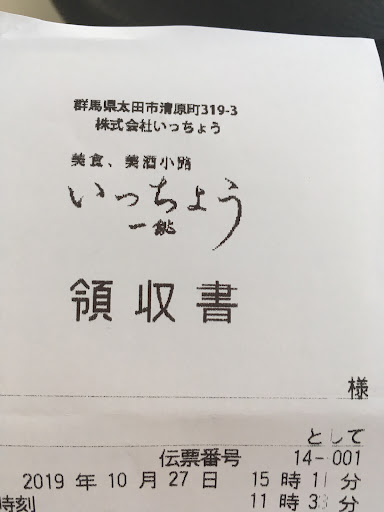 群馬県太田市清原町319-3
株式会社いっちょう
美食、美酒小路
いっちょう
一兆
領収書
様
として
伝票番号 14-001
2019 年 10 月 27 日 15 時 11 分
時刻 11 時 33 分